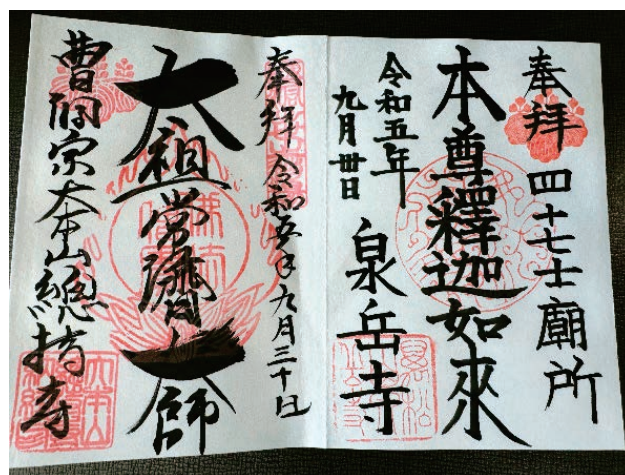 奉拝 四十七士廟所
本尊釋迦如來
令和五年
九月丗日
泉岳寺
奉拝 令和五年九月三十日
太祖常濟大師
曹洞宗大本山總持寺